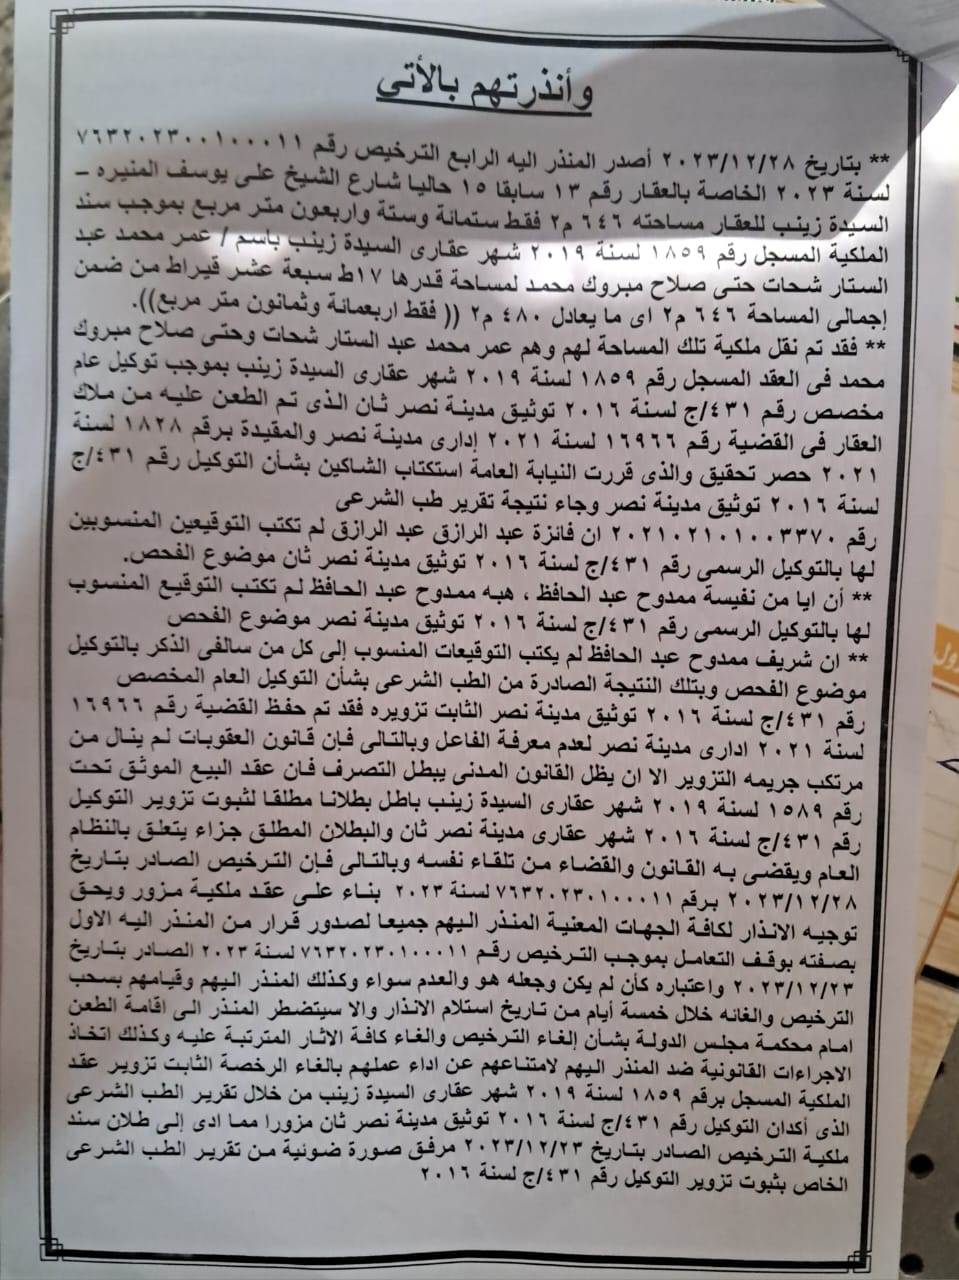 وأنذرتهم بالأتى
** بتاريخ ٢٠٢٣/١٢/٢٨ أصدر المنذر اليه الرابع الترخيص رقم ٧٦٣٢٠٢٣٠٠١٠٠٠٠١١
لسنة ٢٠٢٣ الخاصة بالعقار رقم ١٣ سابقا ١٥ حاليا شارع الشيخ على يوسف المنيره –
السيدة زينب للعقار مساحته ٦٤٦ م٢ فقط ستمائة وستة واربعون متر مربع بموجب سند
الملكية المسجل رقم ١٨٥٩ لسنة ٢٠١٩ شهر عقارى السيدة زينب باسم / عمر محمد عبد
الستار شحات حتى صلاح مبروك محمد لمساحة قدرها ١٧ط سبعة عشر قيراط من ضمن
إجمالى المساحة ٦٤٦ م٢ اى ما يعادل ٤٨٠ م٢ (( فقط اربعمائة وثمانون متر مربع)).
** فقد تم نقل ملكية تلك المساحة لهم وهم عمر محمد عبد الستار شحات وحتى صلاح مبروك
محمد فى العقد المسجل رقم ١٨٥٩ لسنة ٢٠١٩ شهر عقارى السيدة زينب بموجب توكيل عام
مخصص رقم ٤٣١/ج لسنة ٢٠١٦ توثيق مدينة نصر ثان الذى تم الطعن عليه من ملاك
العقار فى القضية رقم ١٦٩٦٦ لسنة ٢٠٢١ إدارى مدينة نصر والمقيدة برقم ١٨٢٨ لسنة
٢٠٢١ حصر تحقيق والذى قررت النيابة العامة استكتاب الشاكين بشأن التوكيل رقم ٤٣١/ج
لسنة ٢٠١٦ توثيق مدينة نصر وجاء نتيجة تقرير طب الشرعى
رقم ٢٠٢١٠٢١٠١٠٠٣٣٧٠ ان فائزة عبد الرازق عبد الرازق لم تكتب التوقيعين المنسوبين
لها بالتوكيل الرسمى رقم ٤٣١/ج لسنة ٢٠١٦ توثيق مدينة نصر ثان موضوع الفحص.
** أن ايا من نفيسة ممدوح عبد الحافظ ، هبه ممدوح عبد الحافظ لم تكتب التوقيع المنسوب
لها بالتوكيل الرسمى رقم ٤٣١/ج لسنة ٢٠١٦ توثيق مدينة نصر موضوع الفحص
** ان شريف ممدوح عبد الحافظ لم يكتب التوقيعات المنسوب إلى كل من سالفى الذكر بالتوكيل
موضوع الفحص وبتلك النتيجة الصادرة من الطب الشرعى بشأن التوكيل العام المخصص
رقم ٤٣١/ج لسنة ٢٠١٦ توثيق مدينة نصر الثابت تزويره فقد تم حفظ القضية رقم ١٦٩٦٦
لسنة ٢٠٢١ ادارى مدينة نصر لعدم معرفة الفاعل وبالتالى فإن قانون العقوبات لم ينال من
مرتكب جريمه التزوير الا ان يظل القانون المدنى يبطل التصرف فان عقد البيع الموثق تحت
رقم ١٥٨٩ لسنة ٢٠١٩ شهر عقارى السيدة زينب باطل بطلانا مطلقا لثبوت تزوير التوكيل
رقم ٤٣١/ج لسنة ٢٠١٦ شهر عقارى مدينة نصر ثان والبطلان المطلق جزاء يتعلق بالنظام
العام ويقضى به القانون والقضاء من تلقاء نفسه وبالتالى فإن الترخيص الصادر بتاريخ
٢٠٢٣/١٢/٢٨ برقم ٧٦٣٢٠٢٣٠١٠٠٠٠١١ لسنة ٢٠٢٣ بناء على عقد ملكية مزور ويحق
توجيه الانذار لكافة الجهات المعنية المنذر اليهم جميعا لصدور قرار من المنذر اليه الاول
بصفته بوقف التعامل بموجب الترخيص رقم ٧٦٣٢٠٢٣٠١٠٠٠٠١١ لسنة ٢٠٢٣ الصادر بتاريخ
٢٠٢٣/١٢/٢٣ واعتباره كأن لم يكن وجعله هو والعدم سواء وكذلك المنذر اليهم وقيامهم بسحب
الترخيص والغائه خلال خمسة أيام من تاريخ استلام الانذار والا سيتضطر المنذر الى اقامة الطعن
امام محكمة مجلس الدولة بشأن إلغاء الترخيص والغاء كافة الاثار المترتبة عليه وكذلك اتخاذ
الاجراءات القانونية ضد المنذر اليهم لامتناعهم عن اداء عملهم بالغاء الرخصة الثابت تزوير عقد
الملكية المسجل برقم ١٨٥٩ لسنة ٢٠١٩ شهر عقارى السيدة زينب من خلال تقرير الطب الشرعى
الذى أكدان التوكيل رقم ٤٣١/ج لسنة ٢٠١٦ توثيق مدينة نصر ثان مزورا مما ادى إلى طلان سند
ملكية الترخيص الصادر بتاريخ ٢٠٢٣/١٢/٢٣ مرفق صورة ضوئية من تقرير الطب الشرعى
الخاص بثبوت تزوير التوكيل رقم ٤٣١/ج لسنة ٢٠١٦